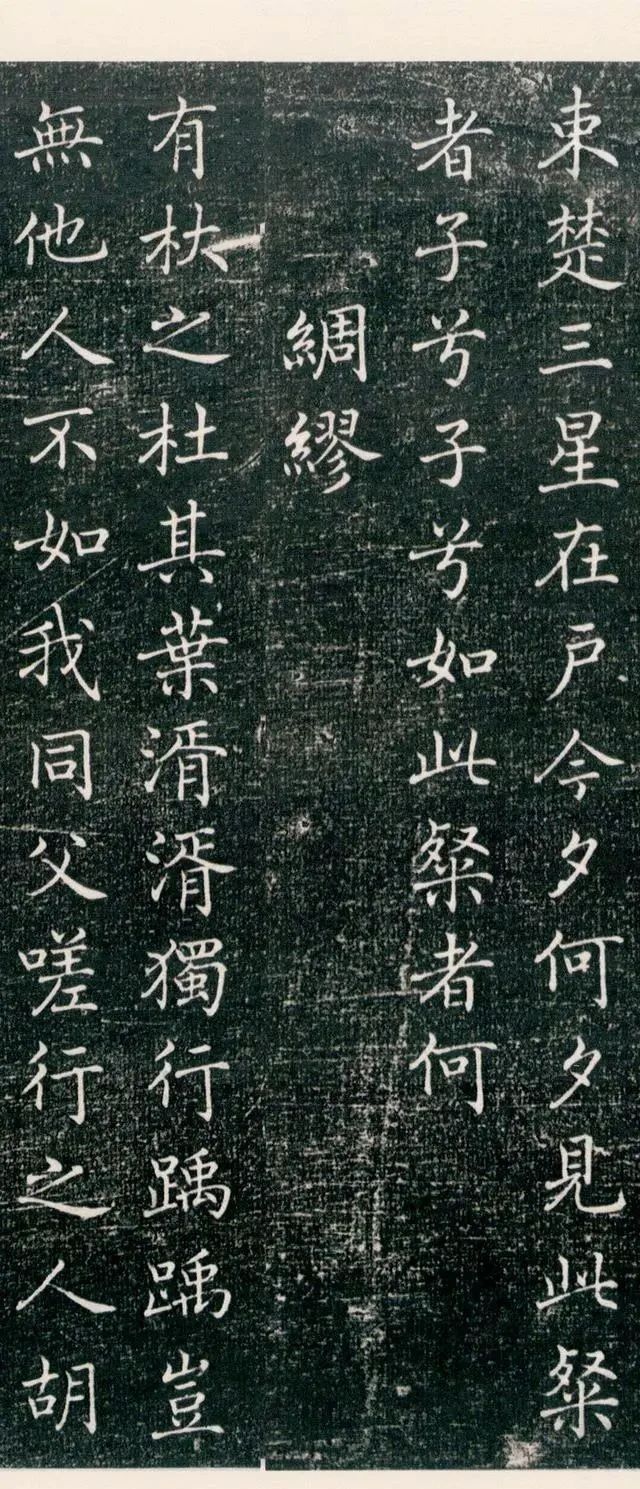 束楚三星在戶今夕何夕見此粲
者子兮子兮如此粲者何
綢繆
有杕之杜其葉湑湑獨行踽踽豈
無他人不如我同父嗟行之人胡